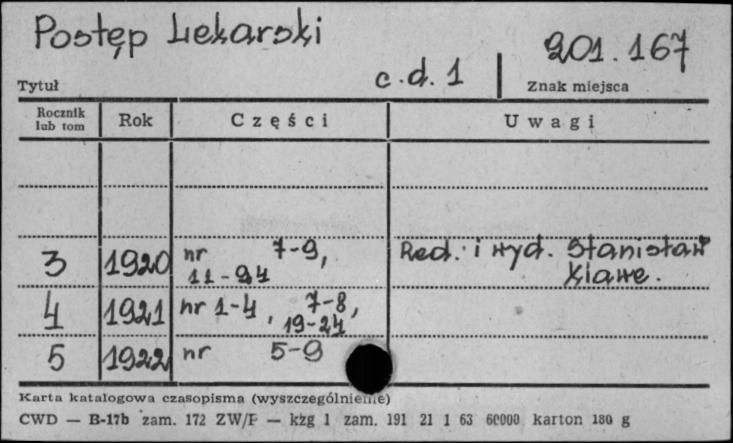 Postęp Lekarski
201.167
Tytuł
c.d. 1
Znak miejsca
Rocznik lub tom
Rok
Części
Uwagi
3 1920 nr 7-9, 11-24 Red. i wyd. Stanisław Klawe.
4 1921 nr 1-4, 7-8, 19-24
5 1922 nr 5-9
Karta katalogowa czasopisma (wyszczególnienie)
CWD — B-17b zam. 172 ZW/F — kzg 1 zam. 191 21 1 63 60000 karton 180 g